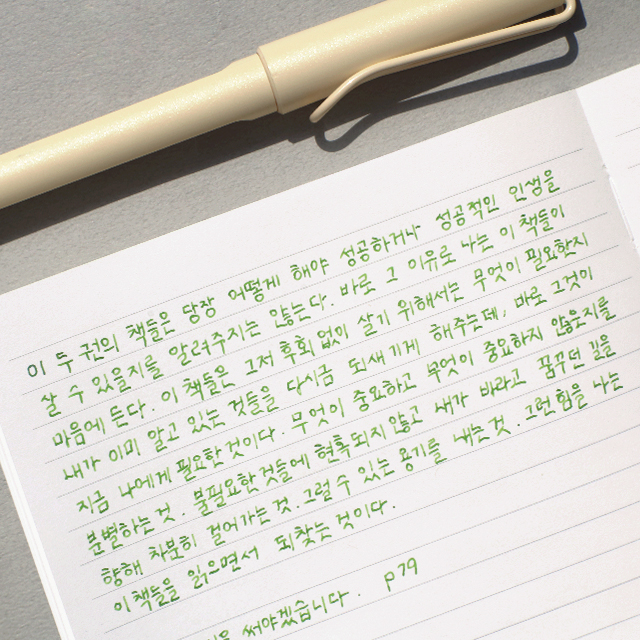 이 두 권의 책들은 당장 어떻게 해야 성공하거나 성공적인 인생을
살 수 있을지를 알려주지는 않는다. 바로 그 이유로 나는 이 책들이
마음에 든다. 이 책들은 그저 후회 없이 살기 위해서는 무엇이 필요한지
내가 이미 알고 있는 것들을 다시금 되새기게 해주는데, 바로 그것이
지금 나에게 필요한 것이다. 무엇이 중요하고 무엇이 중요하지 않은지를
분별하는 것. 불필요한 것들에 현혹되지 않고 내가 바라고 꿈꾸던 일을
향해 묵묵히 걸어가는 것. 그럴 수 있는 용기를 내는 것. 그런 힘을 나는
이 책들로 인해서 되찾는 것이다.
야겠습니다. p79